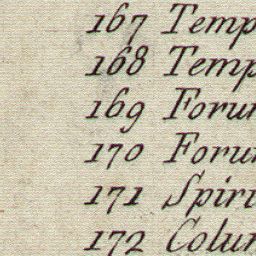 167 Temp
168 Temp
169 Forum
170 Forum
171 Spiri
172 Colum